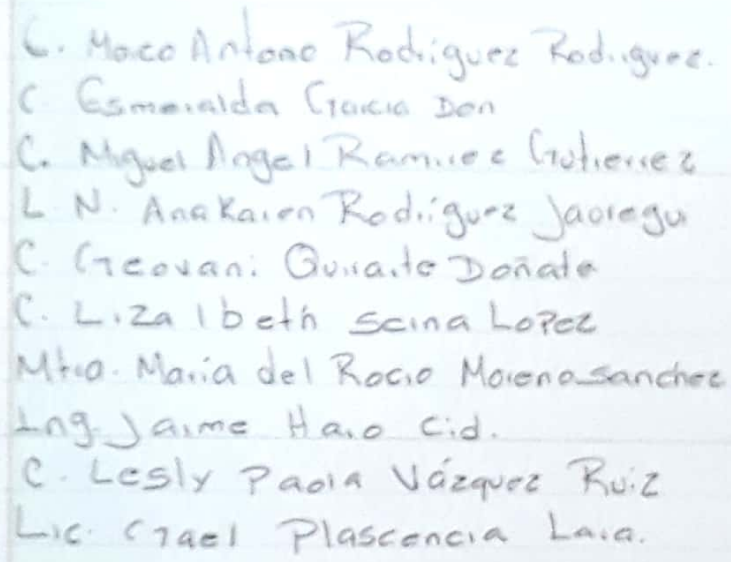 C. Marco Antonio Rodriguez Rodriguez.
C Esmeralda Garcia Don
C. Miguel Angel Ramirez Gutierrez
L N. Ana Karen Rodriguez Jaoregui
C. Geovani Quirarte Doñate
C. Liza Ibeth Serna Lopez
Mtra. Maria del Rocio Moreno Sanchez
Ing. Jaime Haro Cid.
C. Lesly Paola Vázquez Ruiz
Lic. Gael Plascencia Lara.